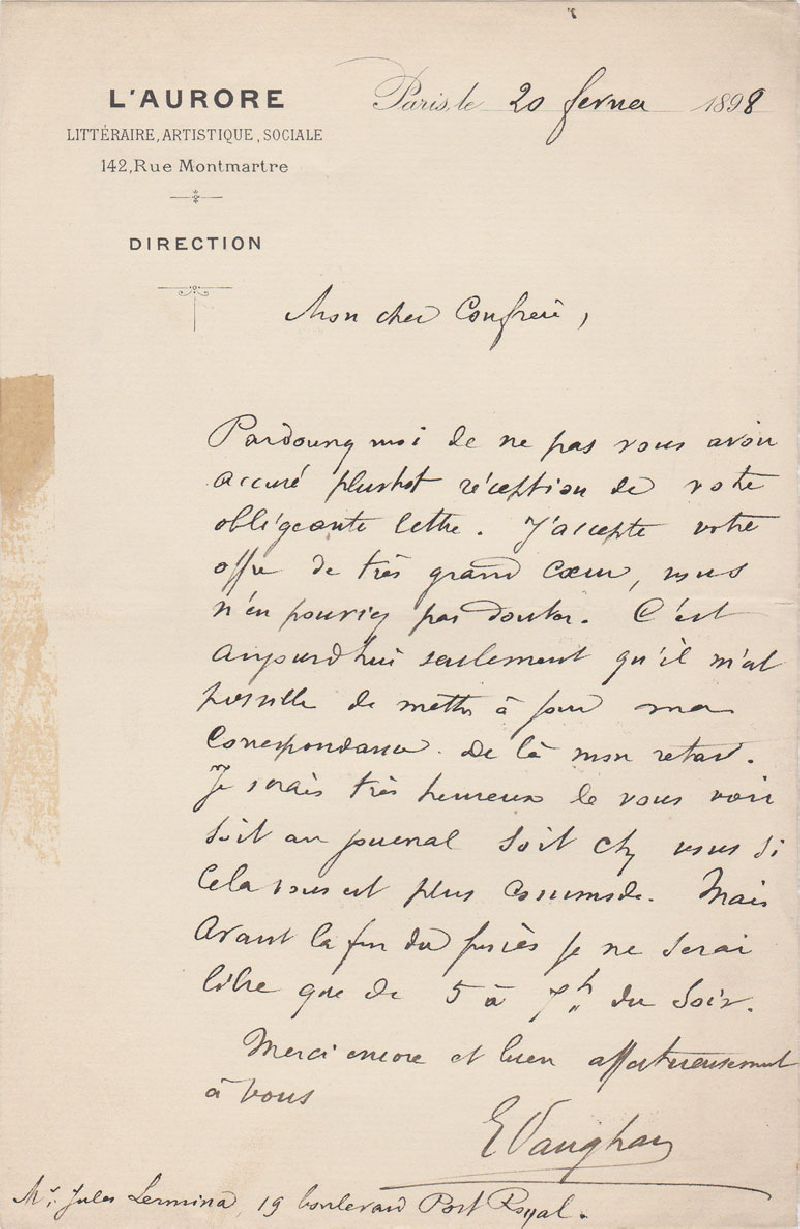 L'AURORE
LITTÉRAIRE, ARTISTIQUE, SOCIALE
142, Rue Montmartre
DIRECTION
Paris, le 20 fevrier 1898
Mon cher Confrère,
Pardonnez moi de ne pas vous avoir
accusé plustot réception de votre
obligeante lettre. J'accepte votre
offre de très grand cœur, vous
n'en pouviez pas douter. C'est
aujourd'hui seulement qu'il m'est
possible de mettre à jour ma
correspondance. De là mon retard.
Je serais très heureux de vous voir
soit au journal soit chez vous si
cela vous est plus commode. Mais
avant la fin du procès je ne serai
libre que de 5 à 7h du soir.
Merci encore et bien affectueusement
à vous
E Vaughan
Mr. Jules Lermina, 19 boulevard Port Royal.